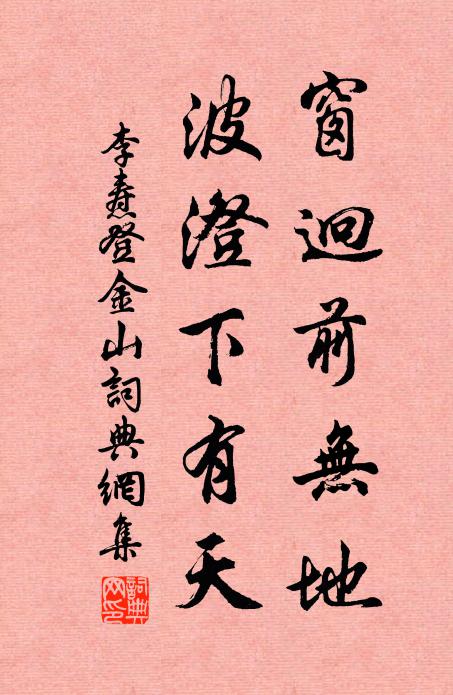 窗迥前無地
波澄下有天
李燾登金山詞典網集
詞典
网印